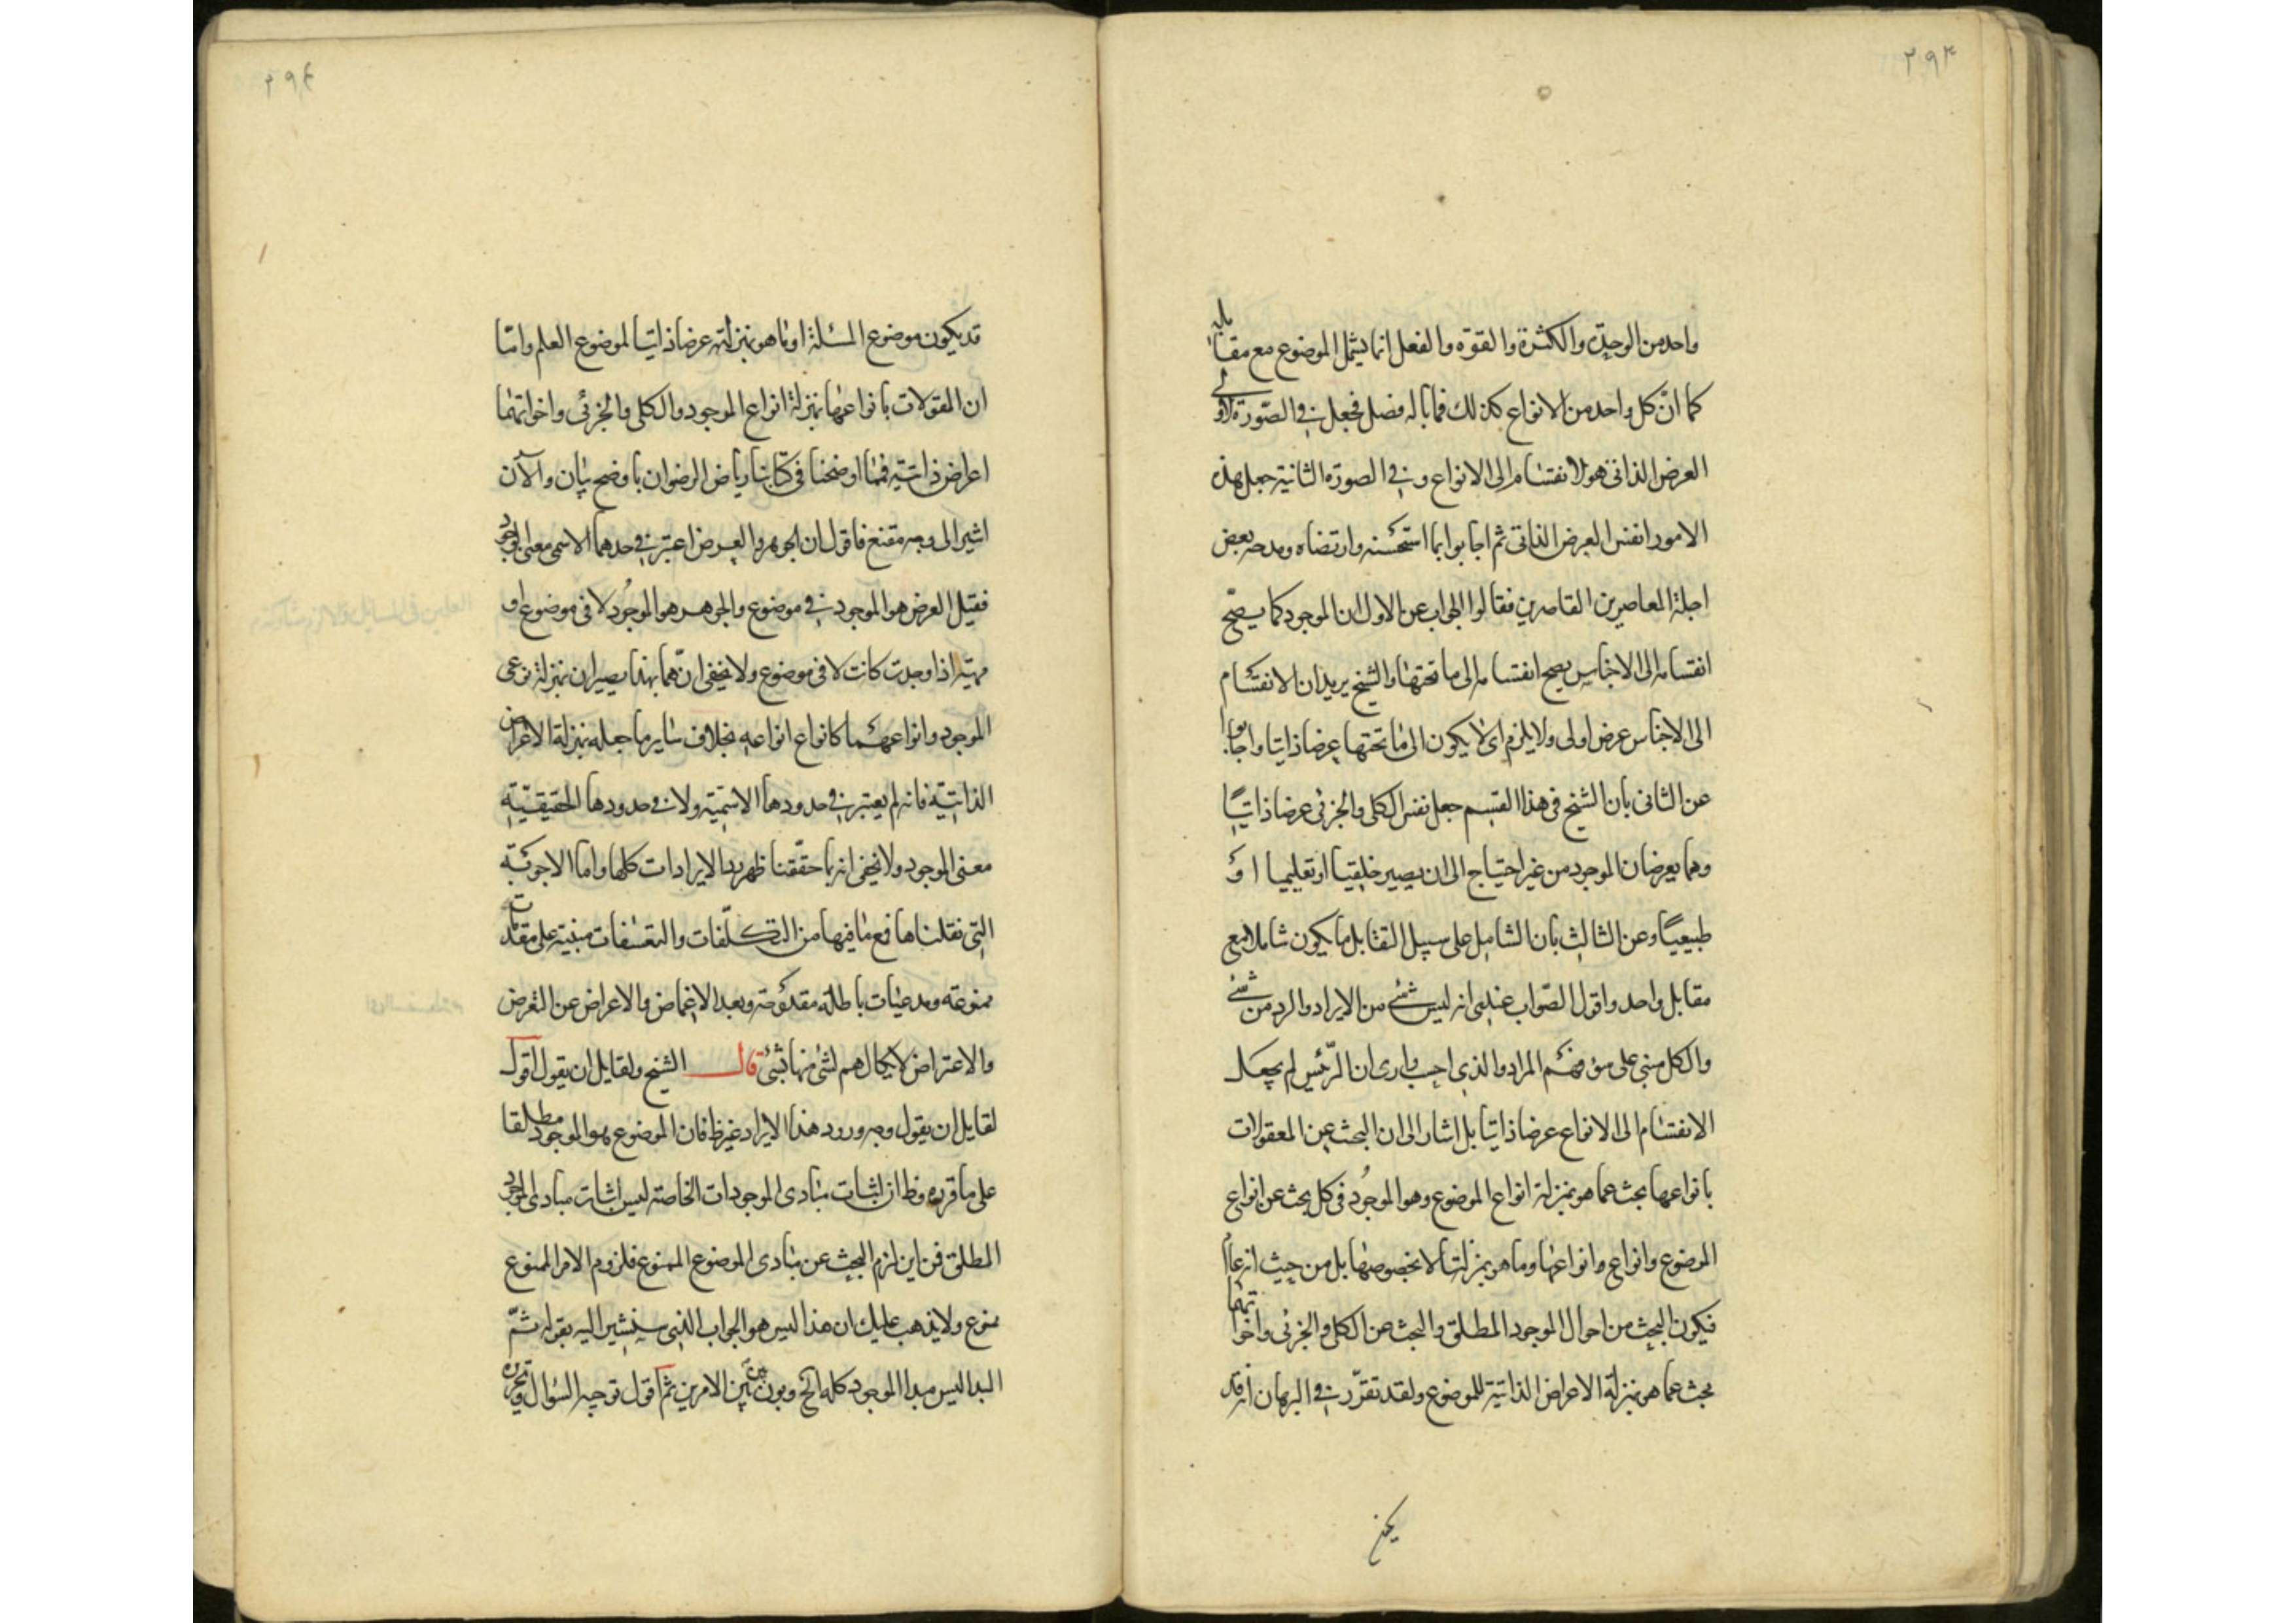 ٢٩٣
واحد من الوحدة والكثرة والقوة والفعل انما يشمل الموضوع مع مقابله
كما انّ كل واحد من الانواع كذلك فما باله فصل فجعل في الصّورة الاولى
العرض الذاتى هو الانقسام الى الانواع وفي الصورة الثانية جعل هذه
الامور انفس العرض الذاتى ثم اجابوا بما استحسنه وارتضاه ومدحه بعض
اجلة المعاصرين القاصرين فقالوا الجواب عن الاول ان الموجود كما يصحّ
انقسامه الى الاجناس يصح انقسامه الى ما تحتها والشيخ يريد ان الانقسام
الى الاجناس عرض اولى ولا يلزم اى لا يكون الى ما تحتها عرضا ذاتيا واجابوا
عن الثانى بان الشيخ فى هذا القسم جعل نفس الكلى والجزئى عرضا ذاتيًا
وهما يعرضان الموجود من غير احتياج الى ان يصير خلقيا او تعليميا او
طبيعيًا وعن الثالث بان الشامل على سبيل التقابل ما يكون شاملا مع
مقابل واحد واقول الصّواب عندى انه ليس شئ من الايراد والرد من شئ
والكل مبنى على سوء فهم المراد والذى احب وارى ان الرّئيس لم يجعل
الانقسام الى الانواع عرضا ذاتيا بل اشار الى ان البحث عن المعقولات
بانواعها بحث عما هو بمنزلة انواع الموضوع وهو الموجُود فى كل بحث عن انواع
الموضوع وانواع وانواعها وما هو بمنزلتها لا بخصوصها بل من حيث
فيكون البحث من احوال الموجود المطلق والبحث عن الكلى والجزئى واخواتهما
بحث عما هو بمنزلة الاعراض الذاتية للموضوع ولقد تقرّر في البرهان انه قد
٢٩٤
قد يكون موضوع المسئلة او ما هو بمنزلته عرضا ذاتيا لموضوع العلم وامّا
ان المقولات بانواعها بمنزلة انواع الموجود والكلى والجزئى واخواتهما
اعراض ذاتية فمما اوضحنا فى كتابنا رياض الرضوان باوضح بيان والآن
اشير الى وجه مقنع فاقول ان الجوهر والعرض اعتبر في حدهما الاسمى معنى الوجود
فقيل العرض هو الموجود في موضوع والجوهر هو الموجُود لا فى موضوع او
مهيّة اذا وجدت كانت لا فى موضوع ولا يخفى انّهما بهذا يصيران بمنزلة نوعى
الموجود وانواعهما كانواع انواعه بخلاف ساير ما جعله بمنزلة الاعراض
الذاتيّة فانه لم يعتبر في حدودها الاسميّة ولا في حدودها الحقيقيّة
معنى الموجود ولا يخفى انه بما حقّقنا ظهر رد الايرادات كلها واما الاجوبة
التى نقلناها فمع ما فيها من التكلّفات والتعسفات مبنية على مقدمات
ممنوعة ومدعيات باطلة مقدوحة وبعد الاغماض والاعراض عن التعرض
والاعتراض لا يكال هم لشئ منها بشئ قال الشيخ ولقايل ان يقول اقول
لقايل ان يقول وجه ورود هذا الايراد غير ظ فان الموضوع هو الموجود مطلقا
على ما قرره وظ ان اثبات مبادى الموجودات الخاصة ليس اثبات مبادى الموجود
المطلق فمن اين لزم البحث عن مبادى الموضوع الممنوع فلزوم الامر الممنوع
ممنوع ولا يذهب عليك ان هذا ليس هو الجواب الذى سيشير اليه بقوله ثمّ
المبدا ليس مبدا الموجود كله الخ وبون بيّن بين الامرين ثم اقول توجيه السّوال وتحريره